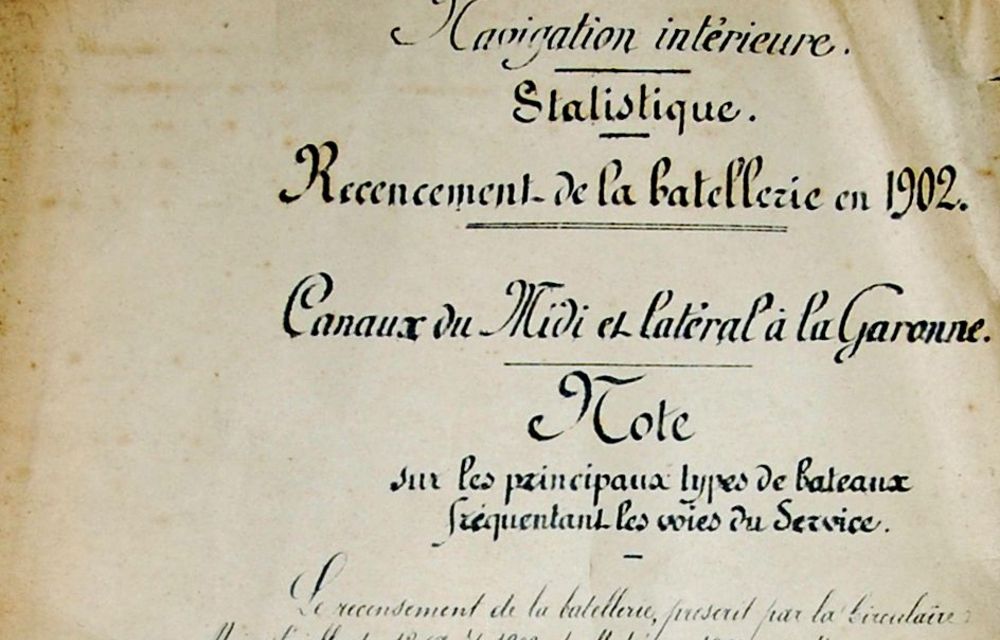 Navigation intérieure.
Statistique.
Recencement de la batellerie en 1902.
Canaux du Midi et latéral à la Garonne.
Note
sur les principaux types de bateaux
fréquentant les voies du Service.
Le recensement de la batellerie, prescrit par la Circulaire